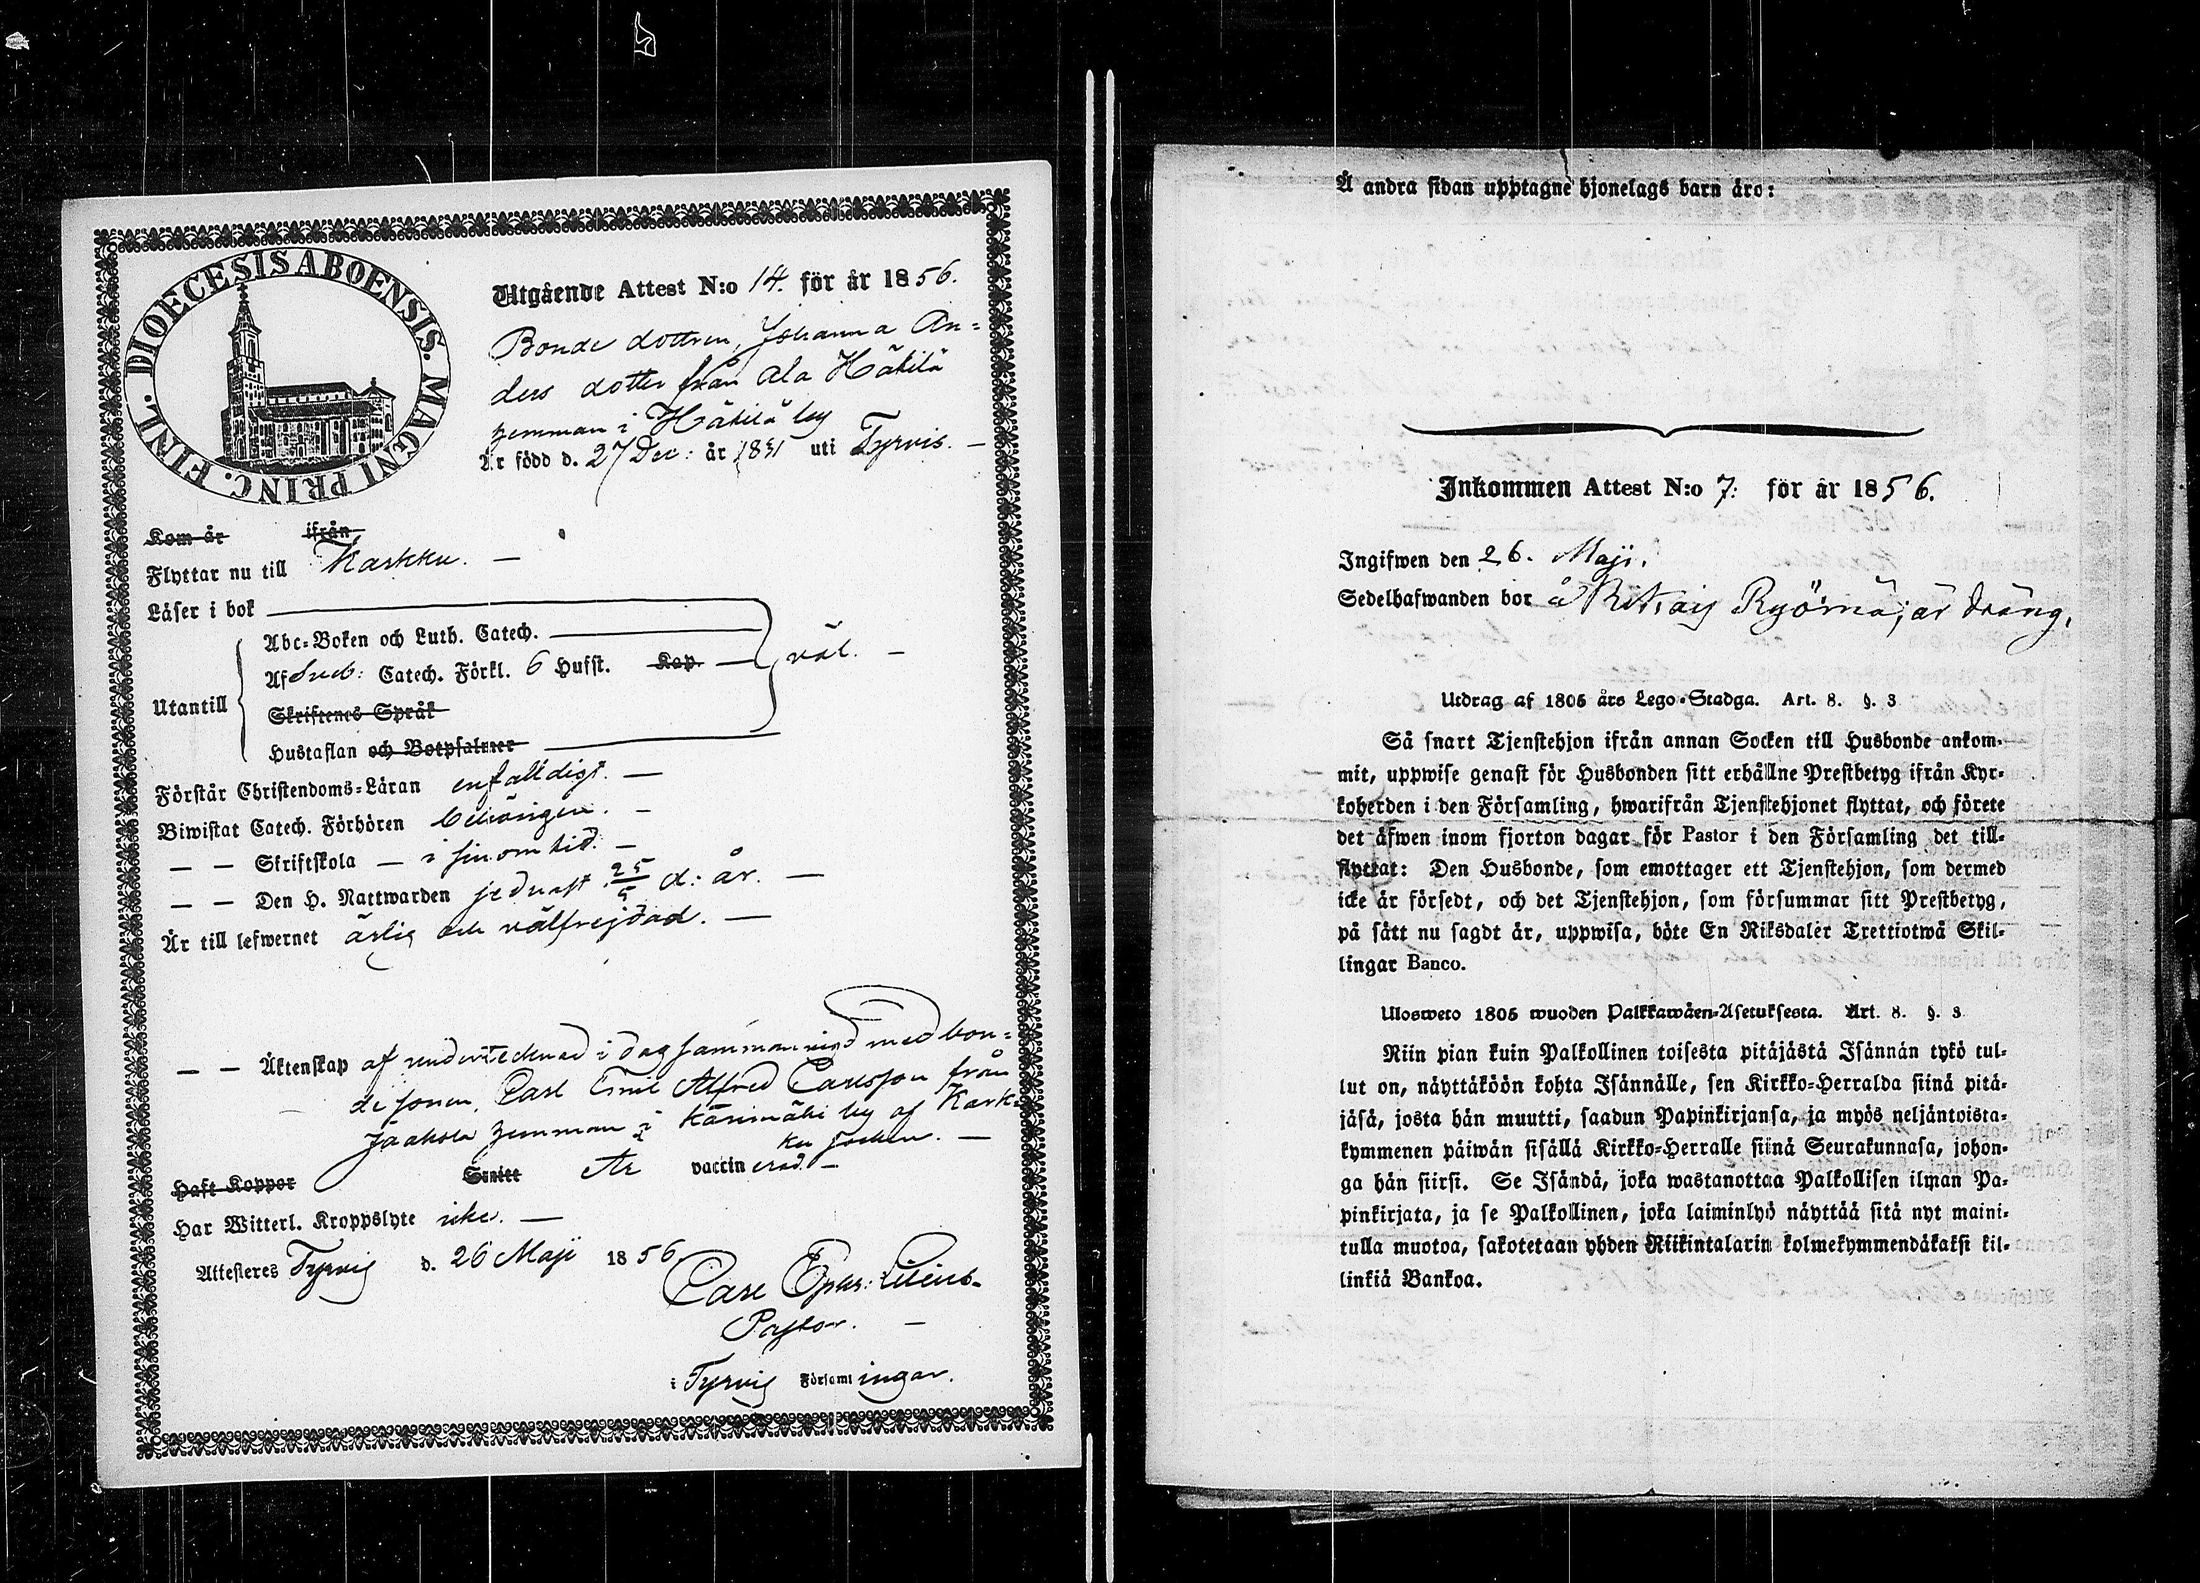 DIOECESIS ABOENSIS. MAGNI PRINC. FINL.
Utgående Attest N:o 14. för år 1856.
Bonde dottren, Johanna An=
ders dotter från Ala Häkilä
hemman i Häkilä by
Är född d. 27 Dec: år 1831 uti Tyrvis. —
Kom år ifrån
Flyttar nu till Karkku. —
Läser i bok
Utantill
Abc=Boken och Luth. Catech.
Af Sveb: Catech. Förkl. 6 Hufst. Kap. väl. —
Skriftenes Språk
Hustaflan och Botpsalmer
Förstår Christendoms=Läran enfalldigt. —
Biwistat Catech. Förhören behörigen. —
— — Skriftskola — i sinom tid. —
— — Den H. Nattwarden sednast 25/5 d: år. —
Är till lefwernet ärlig och välfrejdad. —
— — Äktenskap af undertecknad i dag sammanvigd med bon=
de sonen, Carl Emil Alfred Carlsson från
Jaakola hemman i Kärimäki by af Kark=
ku socken. —
Haft Koppor Smitt Är vaccinerad. —
Har Witterl. Kroppslyte icke. —
Attesteres Tyrvis d. 26 Maji 1856
Carl
Pastor. —
i Tyrvis Församlingar.
Å andra sidan upptagne hjonelags barn äro:
Inkommen Attest N:o 7: för år 1856.
Ingifwen den 26. Maji.
Sedelhafwanden bor å är dräng.
Utdrag af 1805 års Lego-Stadga. Art. 8. §. 3
Så snart Tjenstehjon ifrån annan Socken till Husbonde ankom-
mit, uppwise genast för Husbonden sitt erhållne Prestbetyg ifrån Kyr-
koherden i den Församling, hwarifrån Tjenstehjonet flyttat, och förete
det äfwen inom fjorton dagar för Pastor i den Församling det till-
flyttat: Den Husbonde, som emottager ett Tjenstehjon, som dermed
icke är försedt, och det Tjenstehjon, som försummar sitt Prestbetyg,
på sätt nu sagdt är, uppwisa, böte En Riksdaler Trettiotwå Skil-
lingar Banco.
Ulosweto 1805 wuoden Palkkawäen=Asetuksesta. Art. 8. §. 3
Niin pian kuin Palkollinen toisesta pitäjästä Isännän tykö tul-
lut on, näyttäköön kohta Isännälle, sen Kirkko=Herralda siinä pitä-
jäsä, josta hän muutti, saadun Papinkirjansa, ja myös neljäntoista-
kymmenen päiwän sisällä Kirkko=Herralle siinä Seurakunnasa, johon-
ga hän siirsi. Se Isändä, joka wastanottaa Palkollisen ilman Pa-
pinkirjata, ja se Palkollinen, joka laiminlyö näyttää sitä nyt maini-
tulla muotoa, sakotetaan yhden Riikintalarin kolmekymmendäkaksi kil-
linkiä Bankoa.